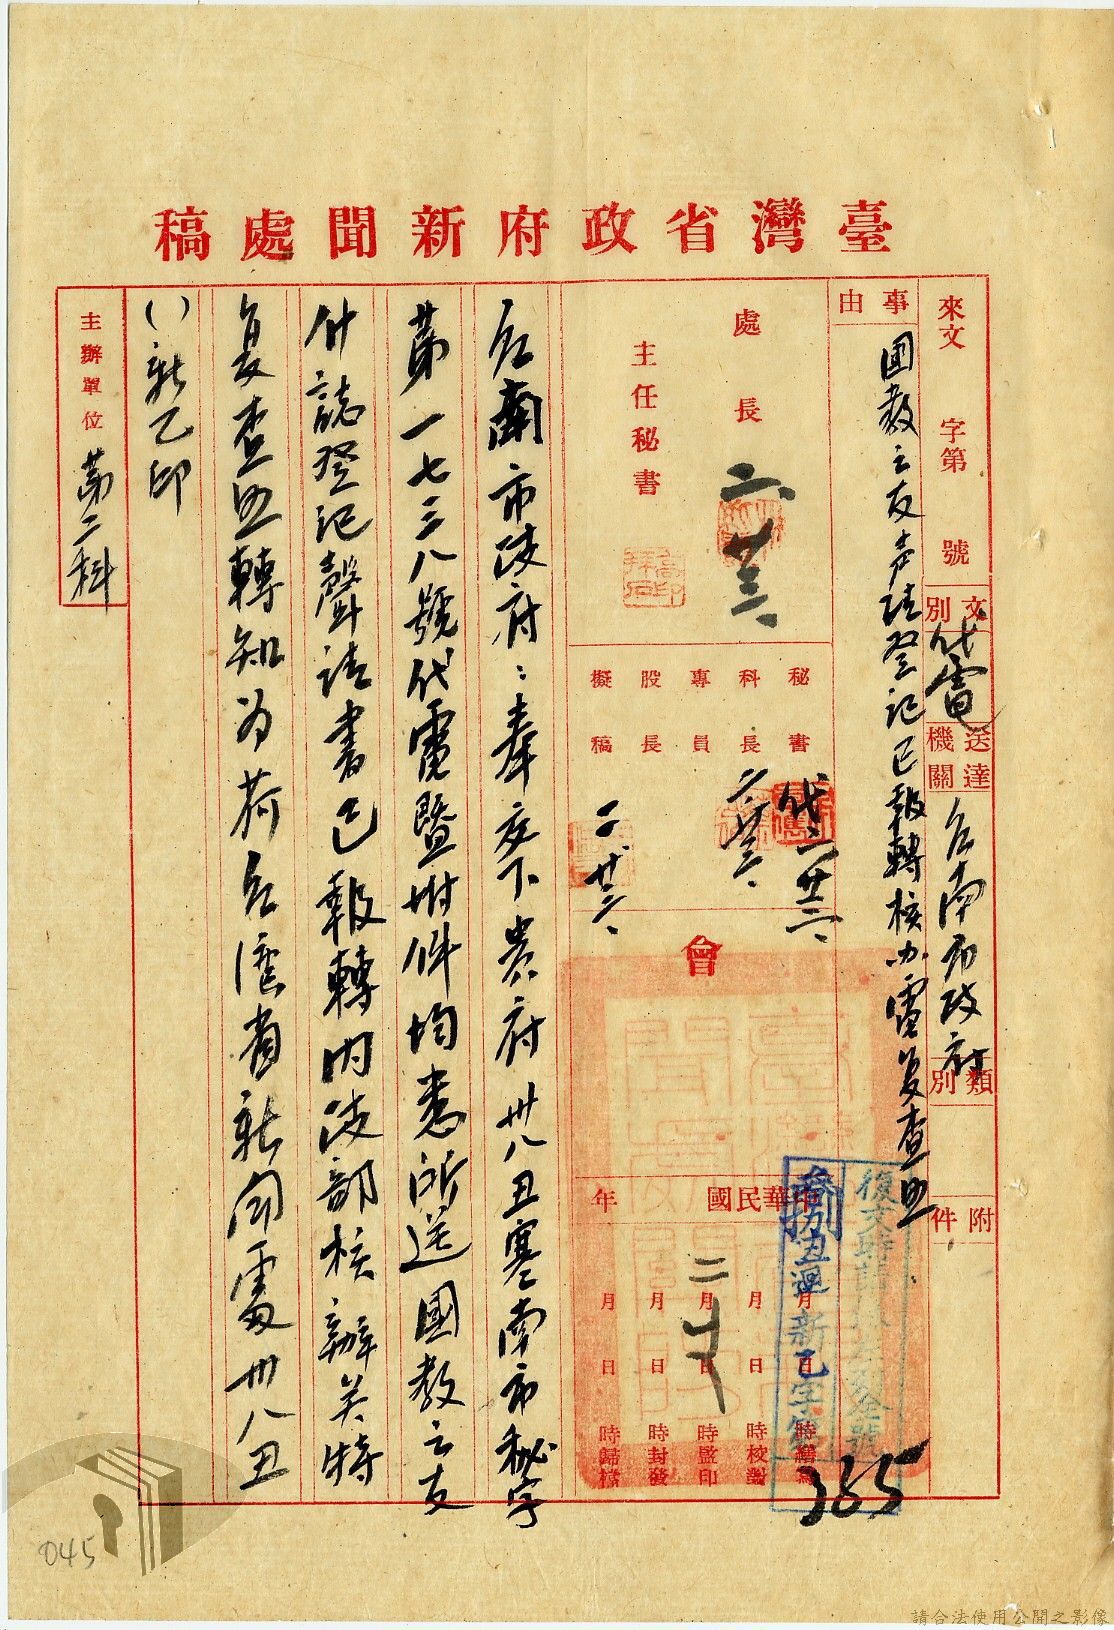 臺灣省政府新聞處稿
來文 字第 號
文別 代電
送達機關 台南市政府
類別
附件
事由 國教之友声請登記已報轉核办電复查照
處長 二、廿三、
主任秘書
秘書 代二廿三、
科長 二、廿三、
專員
股長
擬稿 二、廿三、
會
中華民國 年
月 日 時繕寫
月 日 時校對
二月 日 時蓋印
月 日 時封發
月 日 時歸檔
復文時請
參捌丑迴新乙字第
385
台南市政府：奉交下貴府卅八丑寒南市秘字
第一七三八號代電暨附件均悉所送國教之友
什誌登記聲請書已報轉內政部核辦矣特
复查照轉知為荷台灣省新聞處卅八丑
（）新乙印
主辦單位 第二科
045
請合法使用公開之影像